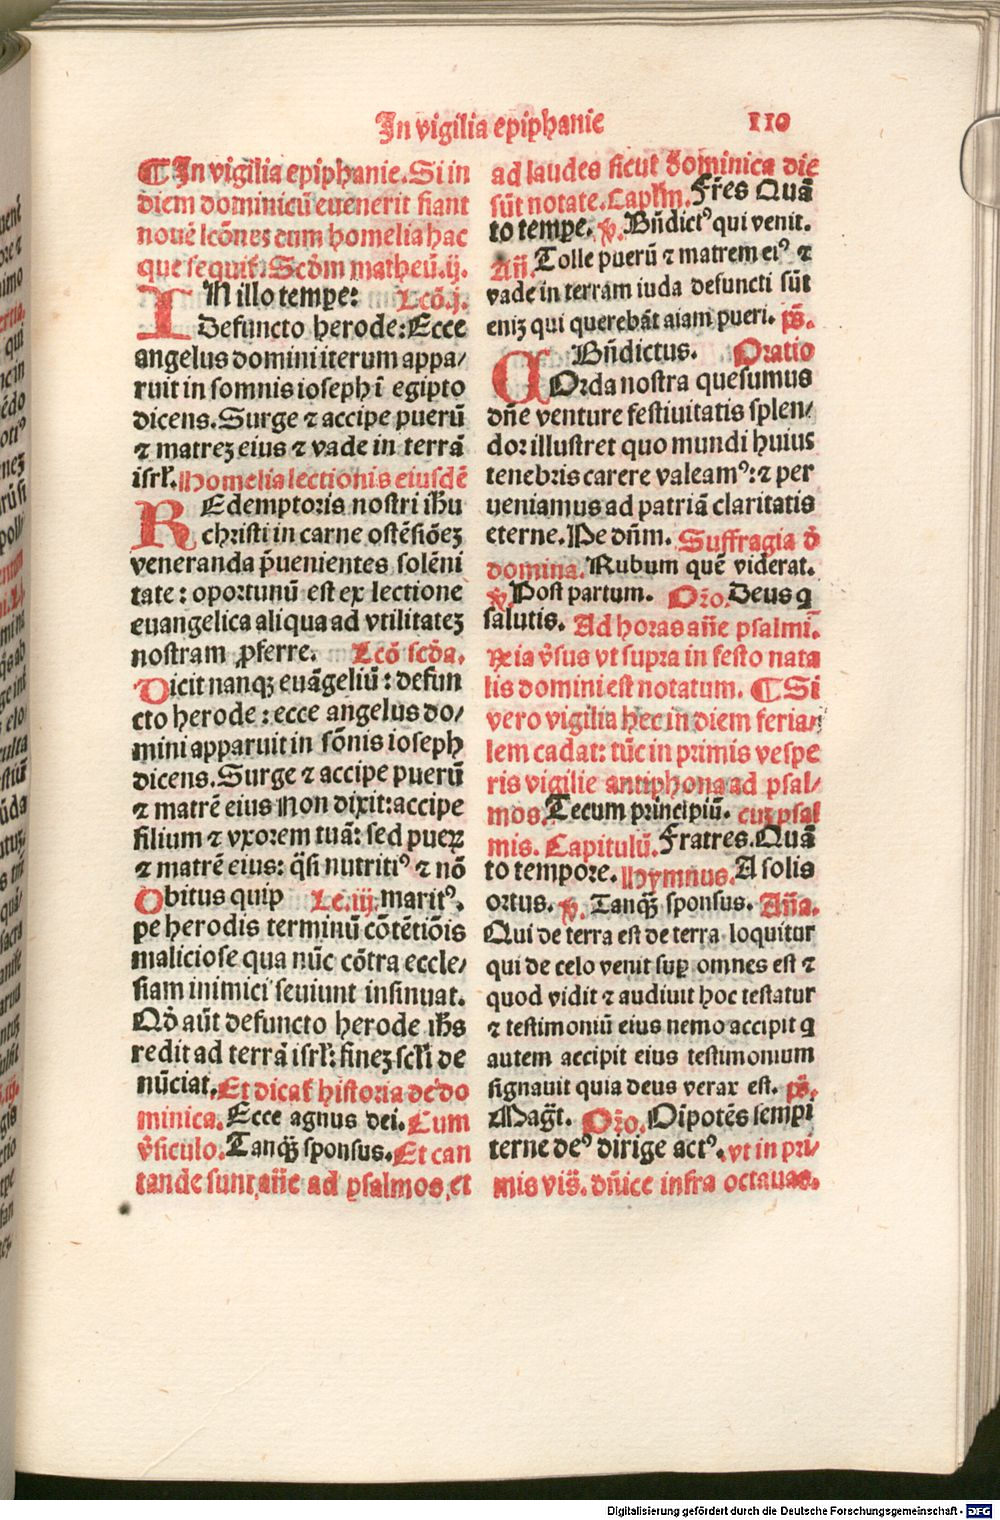 In vigilia epiphanie 110
¶In vigilia epiphanie. Si in
diem dominicū euenerit fiant
nouē lcōnes cum homelia hac
que sequit᷑. Scd̄m matheū.ij.
IN illo tempꝑe: Lcō.j.
Defuncto herode: Ecce
angelus domini iterum appa/
ruit in somnis ioseph ī egipto
dicens. Surge ⁊ accipe puerū
⁊ matreꝫ eius ⁊ vade in terrā
isrl̄. Homelia lectionis eiusdē
REdemptoris nostri ih̄u
christi in carne ostēsiōeꝫ
veneranda p̄uenientes solēni
tate: oportunū est ex lectione
euangelica aliqua ad vtilitateꝫ
nostram ꝓferre. Lcō scd̄a.
Dicit nanqꝫ euāgeliū: defun
cto herode: ecce angelus do/
mini apparuit in sōnis ioseph
dicens. Surge ⁊ accipe puerū
⁊ matrē eius non dixit: accipe
filium ⁊ vxorem tuā: sed pueꝝ
⁊ matrē eius: q̄si nutritiꝰ ⁊ nō
Obitus quip Lc.iij. maritꝰ.
pe herodis terminū cōtētiōis
maliciose qua nūc cōtra eccle/
siam inimici seuiunt insinuat.
Qd̄ aūt defuncto herode ih̄s
redit ad terrā isrl̄: fineꝫ scl̄i de
nūciat. Et dicat᷑ historia de do
minica. Ecce agnus dei. Cum
v̄siculo. Tanq̄ꝫ sponsus. Et can
tande sunt, an̄e ad psalmos, et
ad laudes sicut d̄ominica die
sūt notate. Caplm̄. Fr̄es Quā
to tempꝑe. ℣. Bn̄dictꝰ qui venit.
An̄. Tolle puerū ⁊ matrem eiꝰ ⁊
vade in terram iuda defuncti sūt
eniꝫ qui querebāt aīam pueri. ps̄.
Bn̄dictus. Oratio
COrda nostra quesumus
dn̄e venture festiuitatis splen/
dor illustret quo mundi huius
tenebris carere valeamꝰ: ⁊ per
ueniamus ad patriā claritatis
eterne. Pe dn̄m. Suffragia d̄
domina. Rubum quē viderat.
℣. Post partum. Or̄o. Deus q
salutis. Ad horas an̄e psalmi.
℞ia v̄sus vt supra in festo nata
lis domini est notatum. ¶Si
vero vigilia hec in diem feria/
lem cadat: tūc in primis vespe
ris vigilie antiphona ad psal/
mos. Tecum principiū. cuꝫ psal
mis. Capitulū. Fratres. Quā
to tempore. Hymnus. A solis
ortus. ℣. Tanq̄ꝫ sponsus. An̄a.
Qui de terra est de terra loquitur
qui de celo venit suꝑ omnes est ⁊
quod vidit ⁊ audiuit hoc testatur
⁊ testimoniū eius nemo accipit q
autem accipit eius testimonium
signauit quia deus verax est. ps̄.
Maḡt. Or̄o. Oīpotēs sempi
terne deꝰ dirige actꝰ. vt in pri/
mis vis̄. dn̄ice infra octauas.
Digitalisierung gefördert durch die Deutsche Forschungsgemeinschaft - DFG